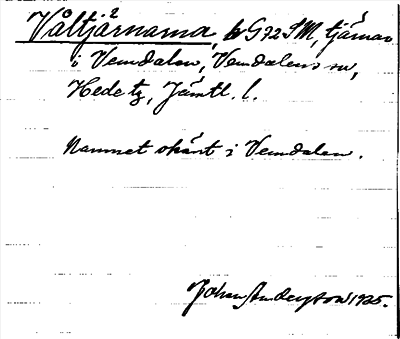 Våltjärnarna, G 92 SM, tjärnar
i Vemdalen, Vemdalens sn,
Hede tg, Jämtl. l.
Namnet okänt i Vemdalen.
Johan Anderson 1925.